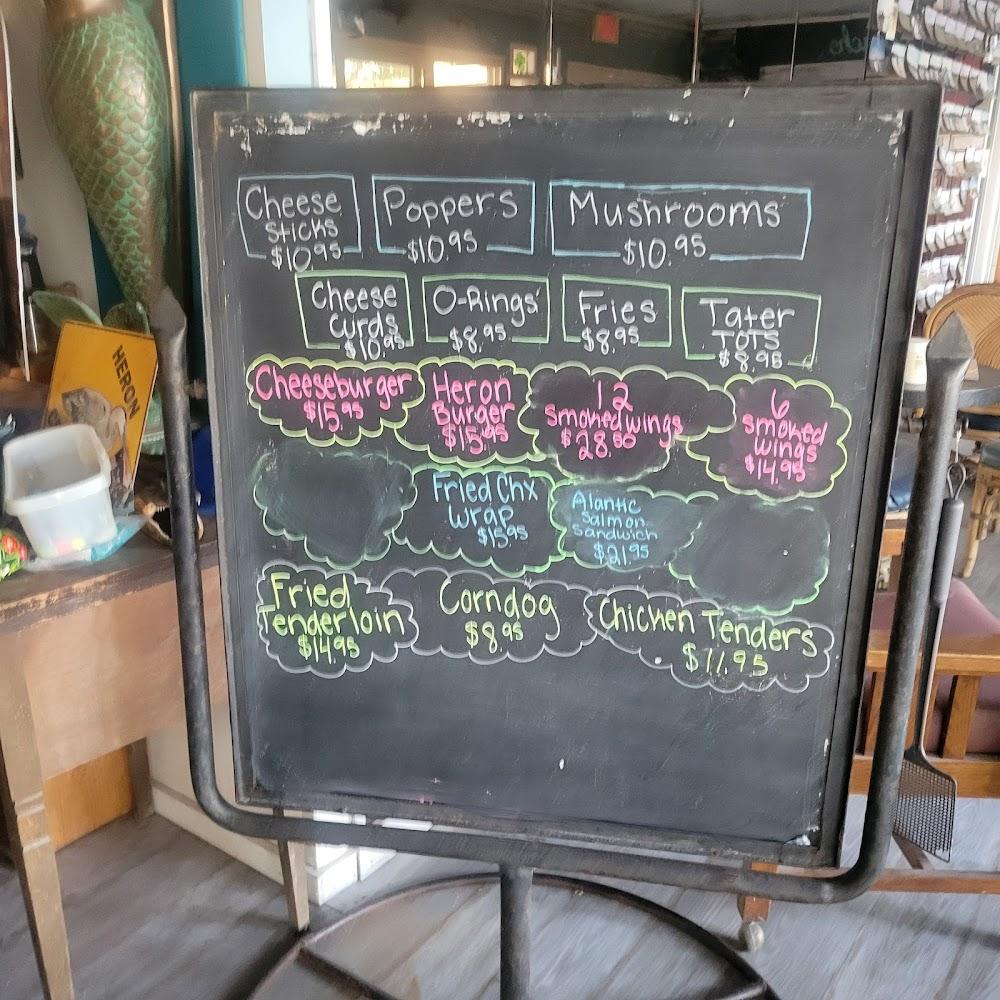 Cheese
Sticks
$10.95
Poppers
$10.95
Mushrooms
$10.95
Cheese
Curds
$10.95
O-Rings
$8.95
Fries
$8.95
Tater
TOTS
$8.95
Cheeseburger
$15.95
Heron
Burger
$15.95
12
Smoked wings
$28.00
6
Smoked
wings
$14.95
Fried Chx
Wrap
$15.95
Alantic
Salmon
Sandwich
$21.95
Fried
Tenderloin
$14.95
Corndog
$8.95
Chicken Tenders
$11.95
HERON